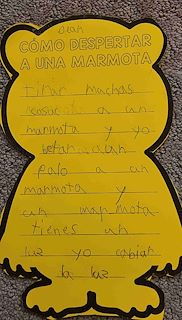 CÓMO DESPERTAR
A UNA MARMOTA
tirar muchas
a un
marmota y yo
un
palo a un
marmota y
un marmota
tienes un
luz yo
la luz